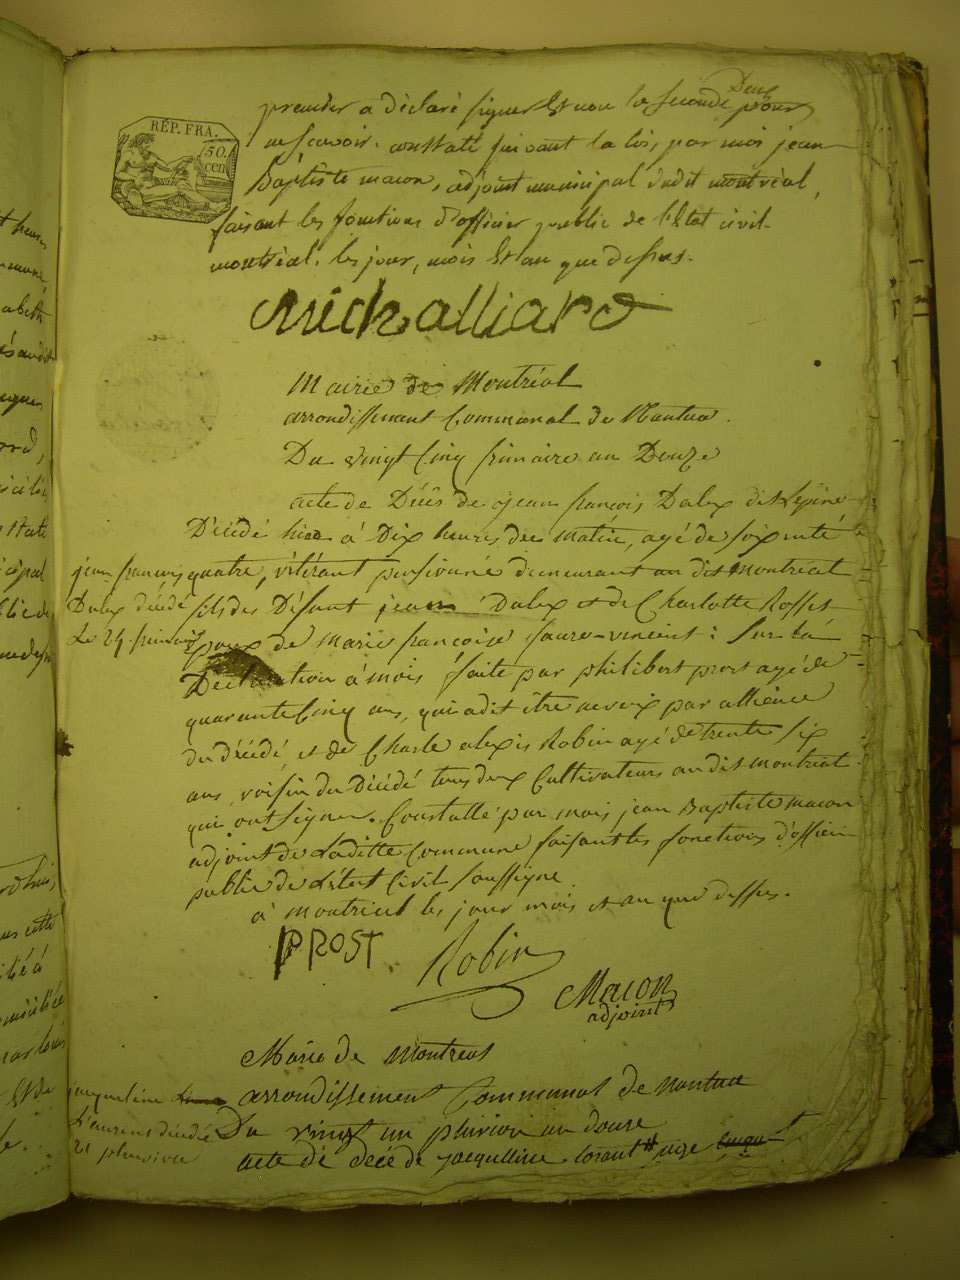 RÉP. FRA.
50
cen
premier a déclaré signer et non la seconde pour Deux
ne scavoir. constaté suivant la loi, par moi jean
Baptiste macon, adjoint municipal dudit montréal,
faisant les fonctions d'officier public de l'Etat civil.
montréal. les jour, mois et an que dessus.
Mich alliard
Mairie de Montréal
arrondissement Communal de Nantua.
Du vingt Cinq frimaire an Douze
acte de Décès de jean françois Dalex dit Lépine
Décédé hier à Dix heures du matin, agé de soixente
quatre, vétérant pensionné demeurant au dit Montréal
fils des Défunt jean Dalex et de Charlotte Rosset
Epoux de marie françoise favre-vincent: Sur la
Déclaration à mois faite par philibert prost agé de
quarante Cinq ans, qui a dit être neveux par allience
du décédé, et de Charle alexis Robin agé de trente six
ans, voisin du Décédé tous deux Cultivateurs au dit montréal
qui ont signer. Constatté par mois jean Baptiste macon
adjoint de Laditte Commune faisant les fonctions d'officier
public de L'état Civil Soussigné
à montreal les jour mois et an que dessus.
jean françois
Dalex décédé
Le 24 frimaire
PROST
Robin
Macon
adjoint
Marie de Montreal
arrondissement Communal de nantua
Du vingt un pluviou an douse
acte de décé de jacqulline Lorant agé
jacqueline
Laurent décédée
21 pluviose